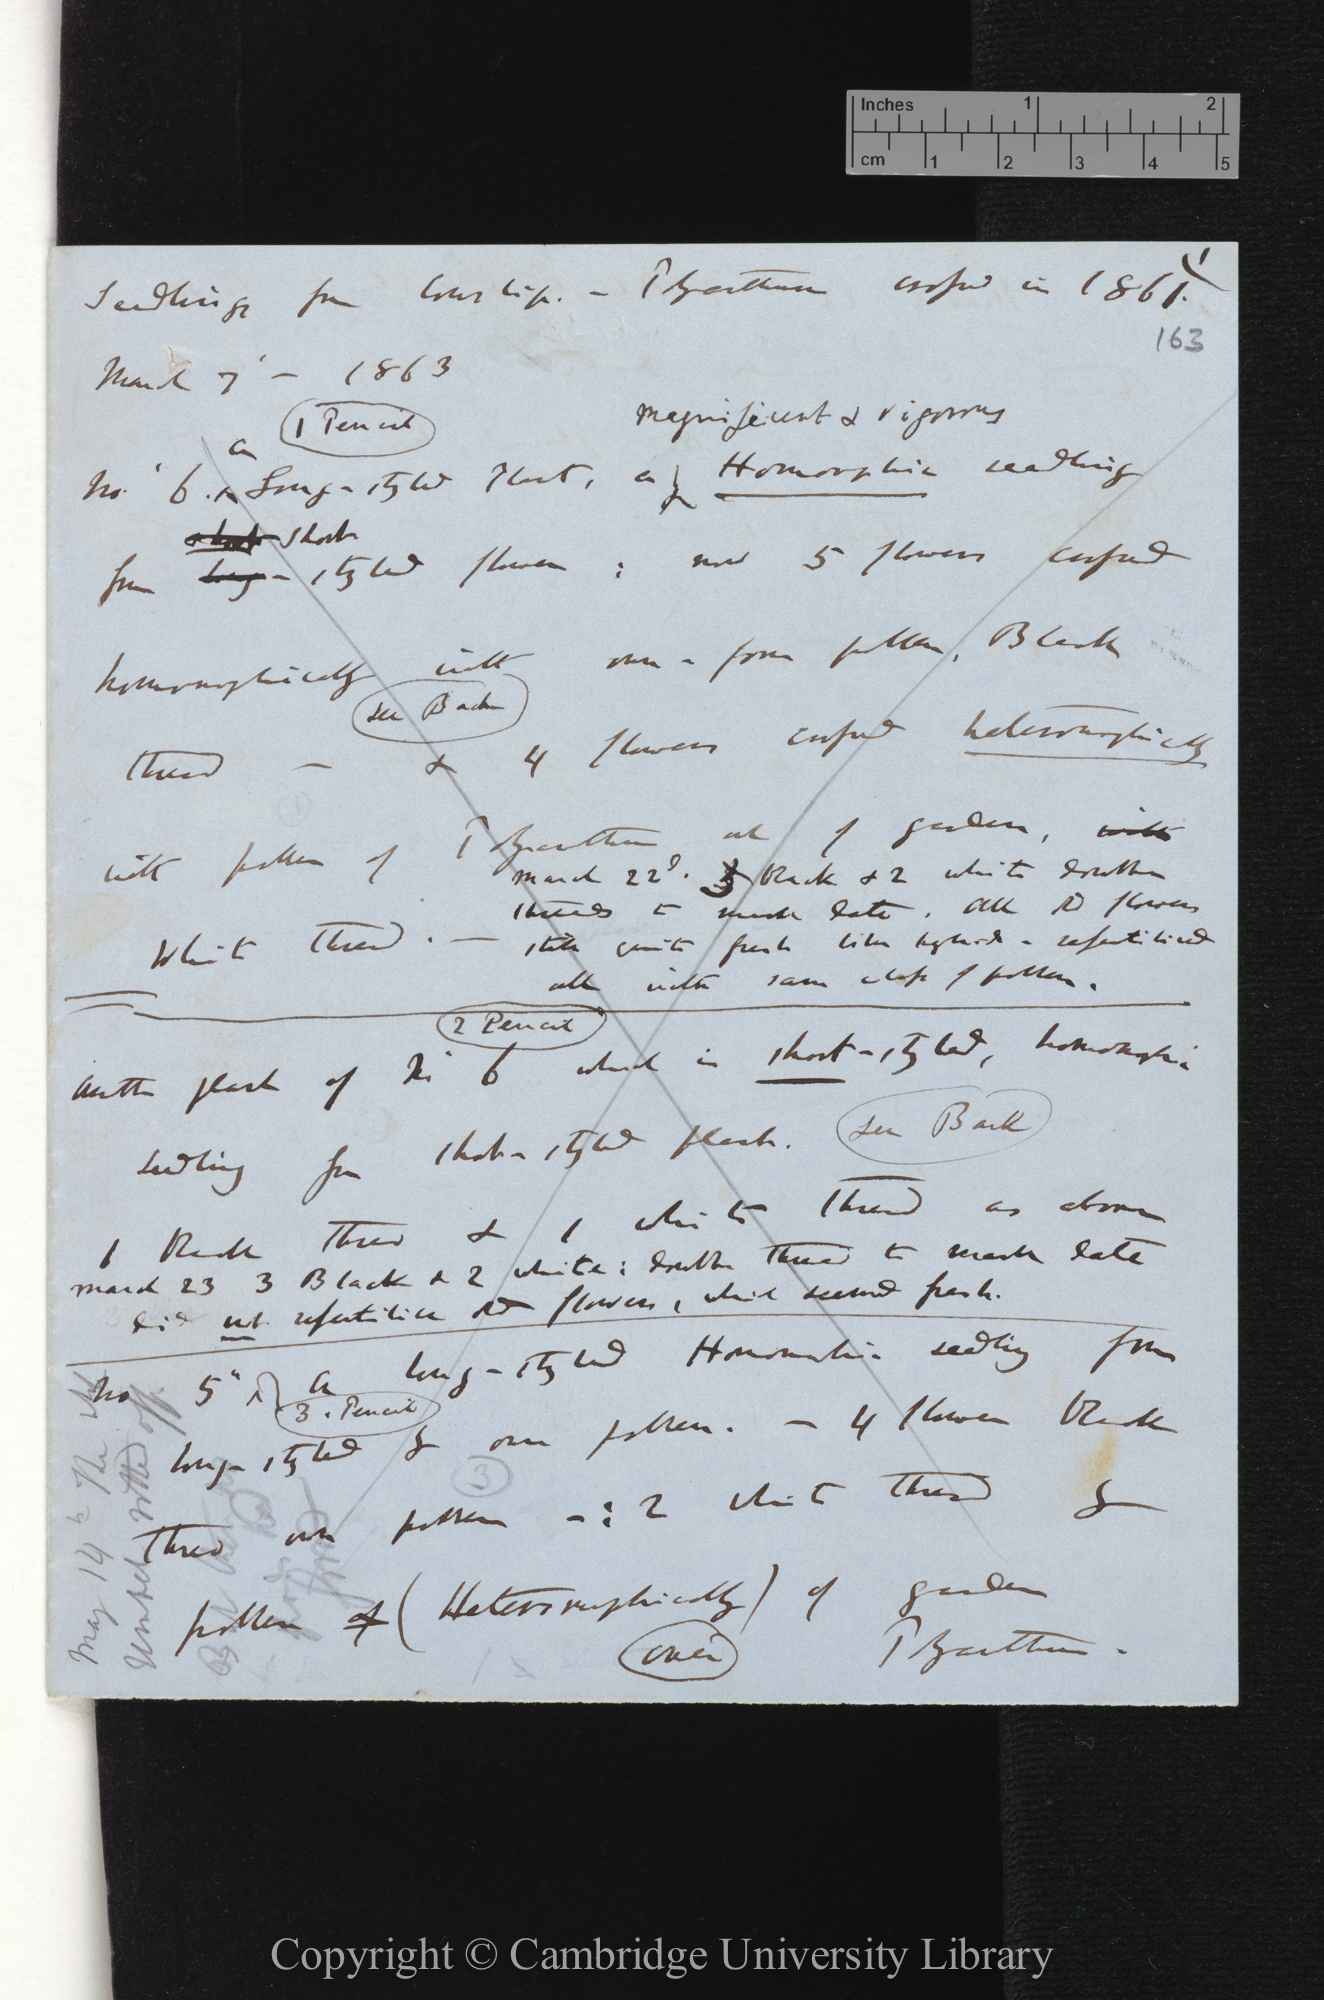 Inches 1 2
cm 1 2 3 4 5
Seedlings from Cowslip. – Polyanthus crossed in 1861.
163
March 7 – 1863
1 Pencil
magnificent & vigorous
No. 6. a Long-styled Plant, a Homomorphic seedling
short
from long-styled flower ; now 5 flowers crossed
homomorphically with own-form pollen, Black
see Back
thread – & 4 flowers crossed heteromorphically
with pollen of Polyanthus out of garden, with
March 22d. 3 Black & 2 white double
threads to mark date. All old flowers
White thread. –
still quite fresh like hybrids – refertilised
all with same class of pollen.
2 Pencil
Another plant of No 6 which is short-styled, homomorphic
seedling from short-styled plant.
see Back
1 Black thread & 1 white thread as above
March 23 3 Black & 2 white: double thread to mark date
did not refertilise old flowers, which seemed fresh.
No 5 a long-styled Homomorphic seedling from
3. Pencil
long-styled & own pollen. – 4 flowers Black
3
thread own pollen – : 2 white thread &
pollen (Heteromorphically) of garden
over
Polyanthus –
May 14th The
Umbel rotted off
Copyright © Cambridge University Library